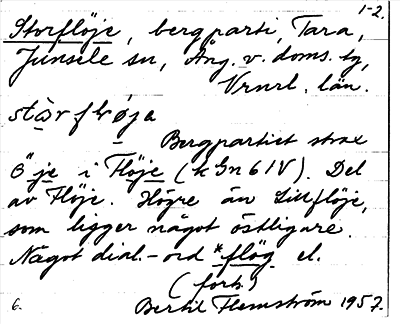 1-2.
Storflöje, bergparti, Tara,
Junsele sn, Ång. v. doms. tg,
Vrnrl. län.
Bergpartiet strax
ö je i Flöje (k Gn 6 IV). Del
av Flöje. Högre än Lillflöje,
som ligger något östligare.
Något dial.-ord *flög el.
(forts)
6. Bertil Flemström 1957.